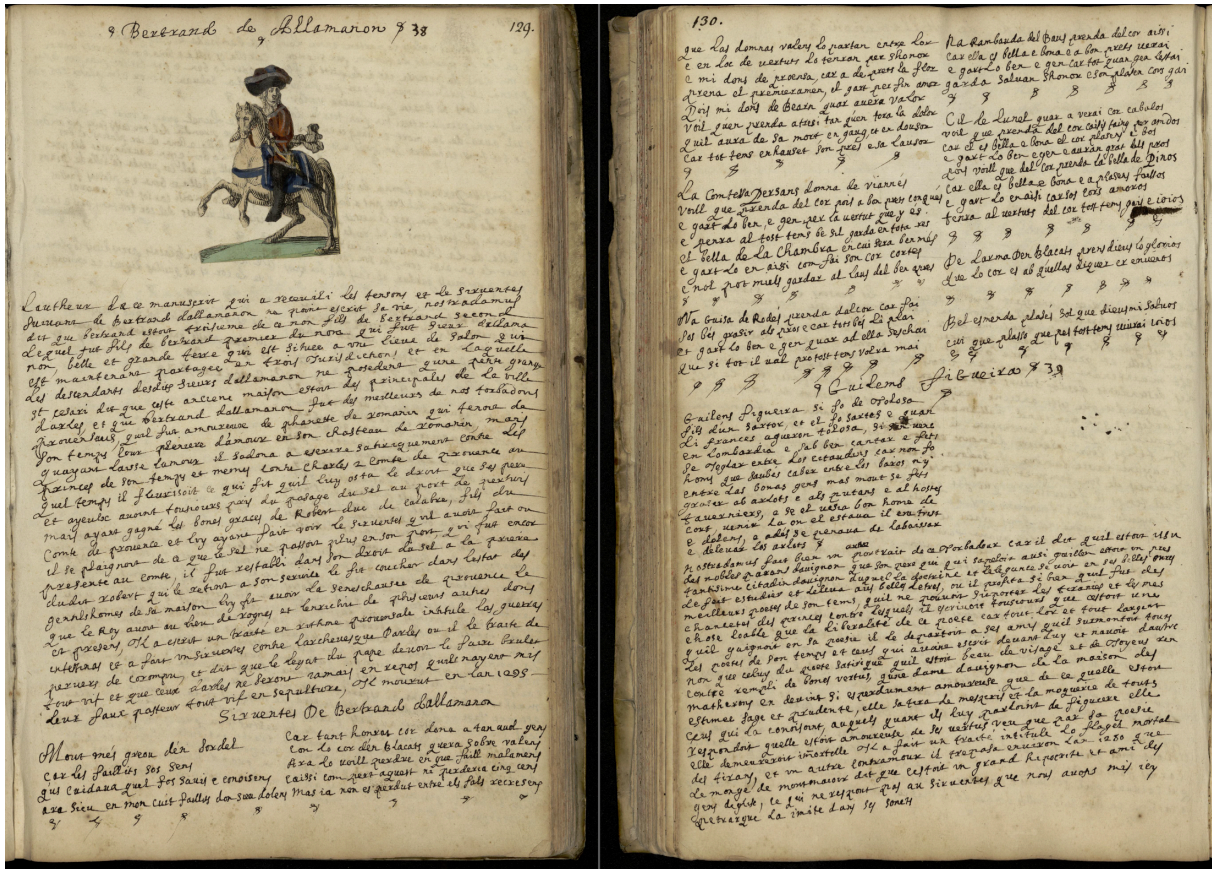 Bertrand de Allamanon 38
129.
Lautheur de ce manuscrit qui a recueilli les tensons et le sirventes
suivant de Bertrand dallamanon ne point escrit sa vie, nostradamus
dit que bertrand estoit troisieme de ce non fils de bertrand second
Lequel fut fils de bertrand premier du nom, qui fut sieur dallama
non, belle et grande terre qui est située a une lieue de salon qui
est maintenant partagee en trois Juridichons et en laquelle
les descendants desdits sieurs dallamanon ne posedent qune petite partie
et cesari dit que ceste anciene maison estoit des principales de la ville
darles, et que bertrand dallamanon fut des meilleurs de nos torbadours
prouensaus, quil fut amoureuse de phanete de romanin qui tenoit de
son temps cour pleniere damour en son chasteau de romanin, mais
quayant laisse lamour il sadona a escrire satiriquement contre les
princes de son temps et memes contre Charles 2 Comte de prouence au
quel temps il fleurisoit ce qui fit quil luy osta le droit que ses pere
et ayeulx avoint tousiours pris du pasage du sel au port de pertuis
mais ayant gagné les bones graces de Robert duc de calabre, fils du
Comte de provence et luy ayant fait voir le sirventes qvil avoit fait ou
il se plaignoit de ce que le sel ne passoit plus en son port, qui fut encor
presente au comte, il fut restabli dans son droit du sel a la priere
dudit robert qui le retint a son service le fit coucher dans lestat des
gentilshomes de sa maison luy fit avoir la seneschausee de prouence le
que le Roy avoit au lieu de rognes et lenrichit de plusieurs autres dons
et presens, Il a escrit un traite en rithme prouensale intitule las guerras
intestinas et a fait un sirventes contre larchevesque Darles ou il le traite de
pervers de corompu, et dit que le legat du pape devoit le faire bruler
tout vif et que ceux darles ne seront jamais en repos quils nayent mis
leur faux pasteur tout vif en sepulture, Il mourut en lan 1295
Sirventes De Bertrand dallamanon
Mout més greou den Sordel
car les faillits sos sens
qus cuidava quel fos savis e conoisens
ara sieu en mon cuit faillos don sue dolens
Car tant honrat cor dona a tan aud gens
Con lo cor den Blacats quera sobre valens
Ara lo voill perdre en que faill malamens
Caissi com pert aquest ni perderia cinq cens
Mas ia non es perdut entre els fals recresens
130.
que las domnas valens lo partan entre lor
e en loc de vertuts lo tenran per shonor
e mi dons de proensa, car a de prets la flor
prena el premieramen, el gart per fin amor
Pois mi dons de Bearn quar auera valor
voil quen prenda atresi tan quen tora la dolor
quil aura de sa mort en gaug et en dousor
Car tot tems enhauset son pres e sa lausor
La Comtessa Dersans domna de viannés
voill que prenda del cor pois a bon pres conqués
e gart lo ben, e gen per la vertut que y es
e penra al tost tems be sil garda en tota res
el bella de La Chambra en cui sera ben més
e gart lo en aissi com fai son cor cortes
e nol pot muls gardar al laus del ben apres
Na Guisa de Rodes prenda dal cor car fai
sos bés grasir als pros e car tots bés li plai
et gart lo ben e gen quar ad ella seschai
que si tot il val pro tost tens volra mai
Na Rambauda del Baus prenda del cor aissi
car ella es bella e bona e a bon prets verai
e gart Lo ben e gen car tot quan gen lestai
garda salvan shonor e son plasen cors gai
Cil de Lunel quar a verai cor cabalos
voil que prenda del cor caissi taing per amdos
car el es bella e bona el cor plasen e bos
e gart Lo ben e gen e auran grat dels pros
pois voill que del cor prenda la bella de Pinos
car ella es bella e bona e a plasens faissos
e gart lo en aisi car sos cors amoros
tenra al vertuts del cor tost tems gais e ioios
De Larma Den Blacats prens dieus lo glorios
que lo cor es ab quellas diquer er enveios
Bel esmenda plases sol que dieus mi salvos
cui que plasso que pes tost tems vivrai ioios
Guilems Figueira 39
Guilens figueira si fo de Tolosa
fils dun sartor, et el fo sartes e quan
li frances agueron tolosa, si sen venc
en Lombardia e sab ben cantar e fets
se Joglar entre los citaudins car non fo
homs que saubes caber entre los baros ny
entre las bonas gens mas mout se fets
grasir ab arlots e als putans e al hostes
taverniers, e se el vesia bon home de
cort, venir la on el estava il era trist
e dolens, e adés se penava de labaissar
e delevar los arlots
nostradamus fait bien un autre portrait de ce Torbadour car il dit quil estoit issu
des nobles parans davignon que son pere qui qui sapeloit ausi guillon estoit un pres
tantisime citadin davignon duquel la doctrine et lelegance se voit en ses filles quil
le fait estudier et lesleva aus belles Letres, ou il profita si bien quil fut des
meilleurs poetes de son tems, quil ne pouvant suporter les tiranies et les mes
chancetes des princes contre lesquels il escrivoit tousiours que cestoit une
chose loable que la liberalité de ce poete car tout lor et tout largent
quil gaignoit en sa poesie il le departoit a ses amis quil surmontoit tous
les poetes de son temps et ceus qui avant escrit devant luy et navoit dautre
non que celuy du poete satirique quil estoit beau de visage et de Joyeus ren
contre rempli de bones vertus, qune dame davignon de la maison des
matherons en devint si esperdument amoureuse que de ce quelle estoit
estimee sage et prudente, elle satira le mespris et la moquerie de touts
ceus qui la conoisoint, auquels quant ils luy parloint de figueire elle
respondoit quelle estoit amoureuse de ses vertus veu que par sa poesie
elle demeureroit imortelle Il a fait un traite intitule lo flagel mortal
des tirans, et un autre contramour il trepasa environ lan 1280 que
le monge de montmaior dit que cestoit un grand hipocrite et ami des
gens deglise, ce qui ne respont pas au sirventes que nous avons mis icy
petrarque la imite dans ses sonets